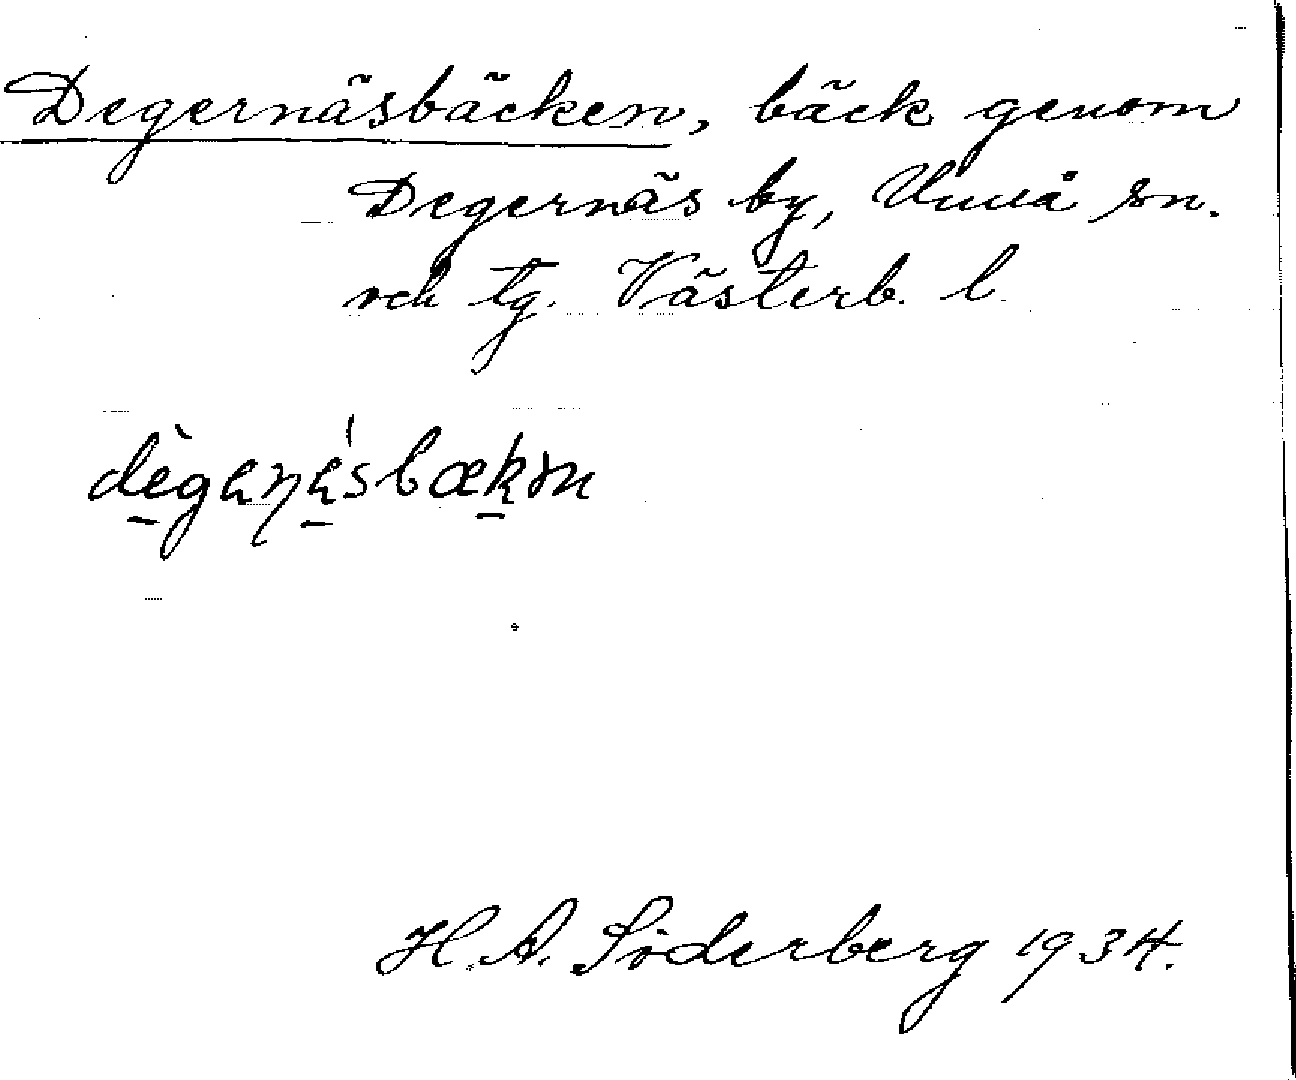 Degernäsbäcken, bäck genom
Degernäs by, Umeå sn.
och tg. Västerb. l.
H. A. Söderberg 1934.